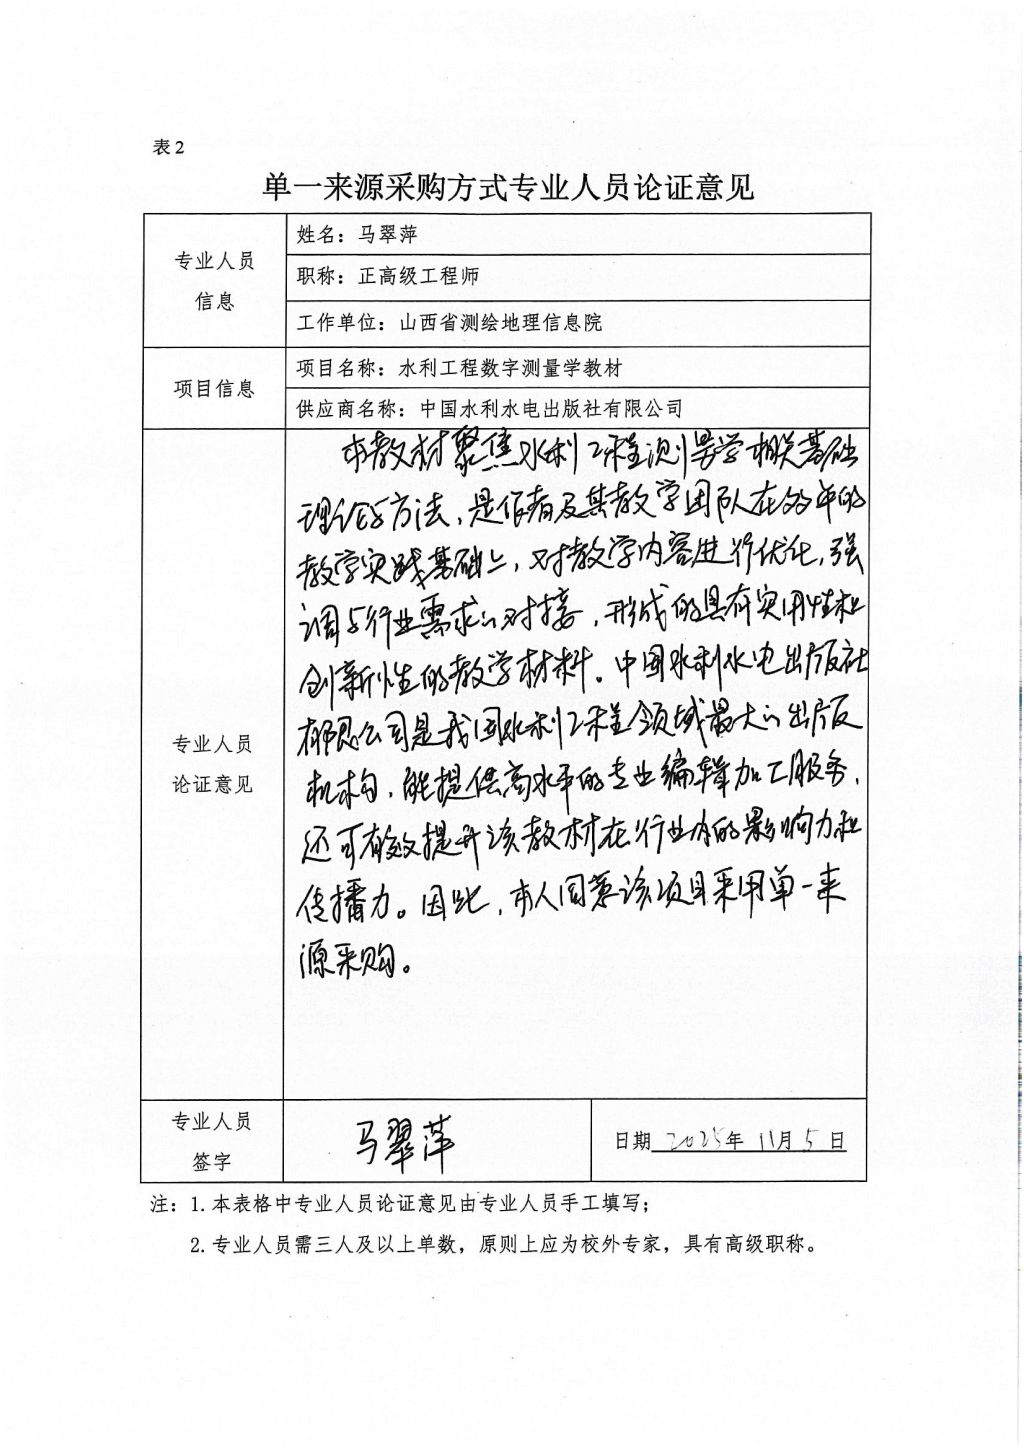 表2
单一来源采购方式专业人员论证意见
专业人员
信息
姓名：马翠萍
职称：正高级工程师
工作单位：山西省测绘地理信息院
项目信息
项目名称：水利工程数字测量学教材
供应商名称：中国水利水电出版社有限公司
专业人员
论证意见
本教材聚焦水利工程测量学相关基础
理论与方法，是作者及其教学团队在多年的
教学实践基础上，对教学内容进行优化，强
调与行业需求的对接，形成的具有实用性和
创新性的教学材料。中国水利水电出版社
有限公司是我国水利工程领域最大的出版
机构，能提供高水平的专业编辑加工服务，
还可有效提升该教材在行业内的影响力和
传播力。因此，本人同意该项目采用单一来
源采购。
专业人员
签字
马翠萍
日期 2025年 11月 5日
注：1.本表格中专业人员论证意见由专业人员手工填写；
2.专业人员需三人及以上单数，原则上应为校外专家，具有高级职称。